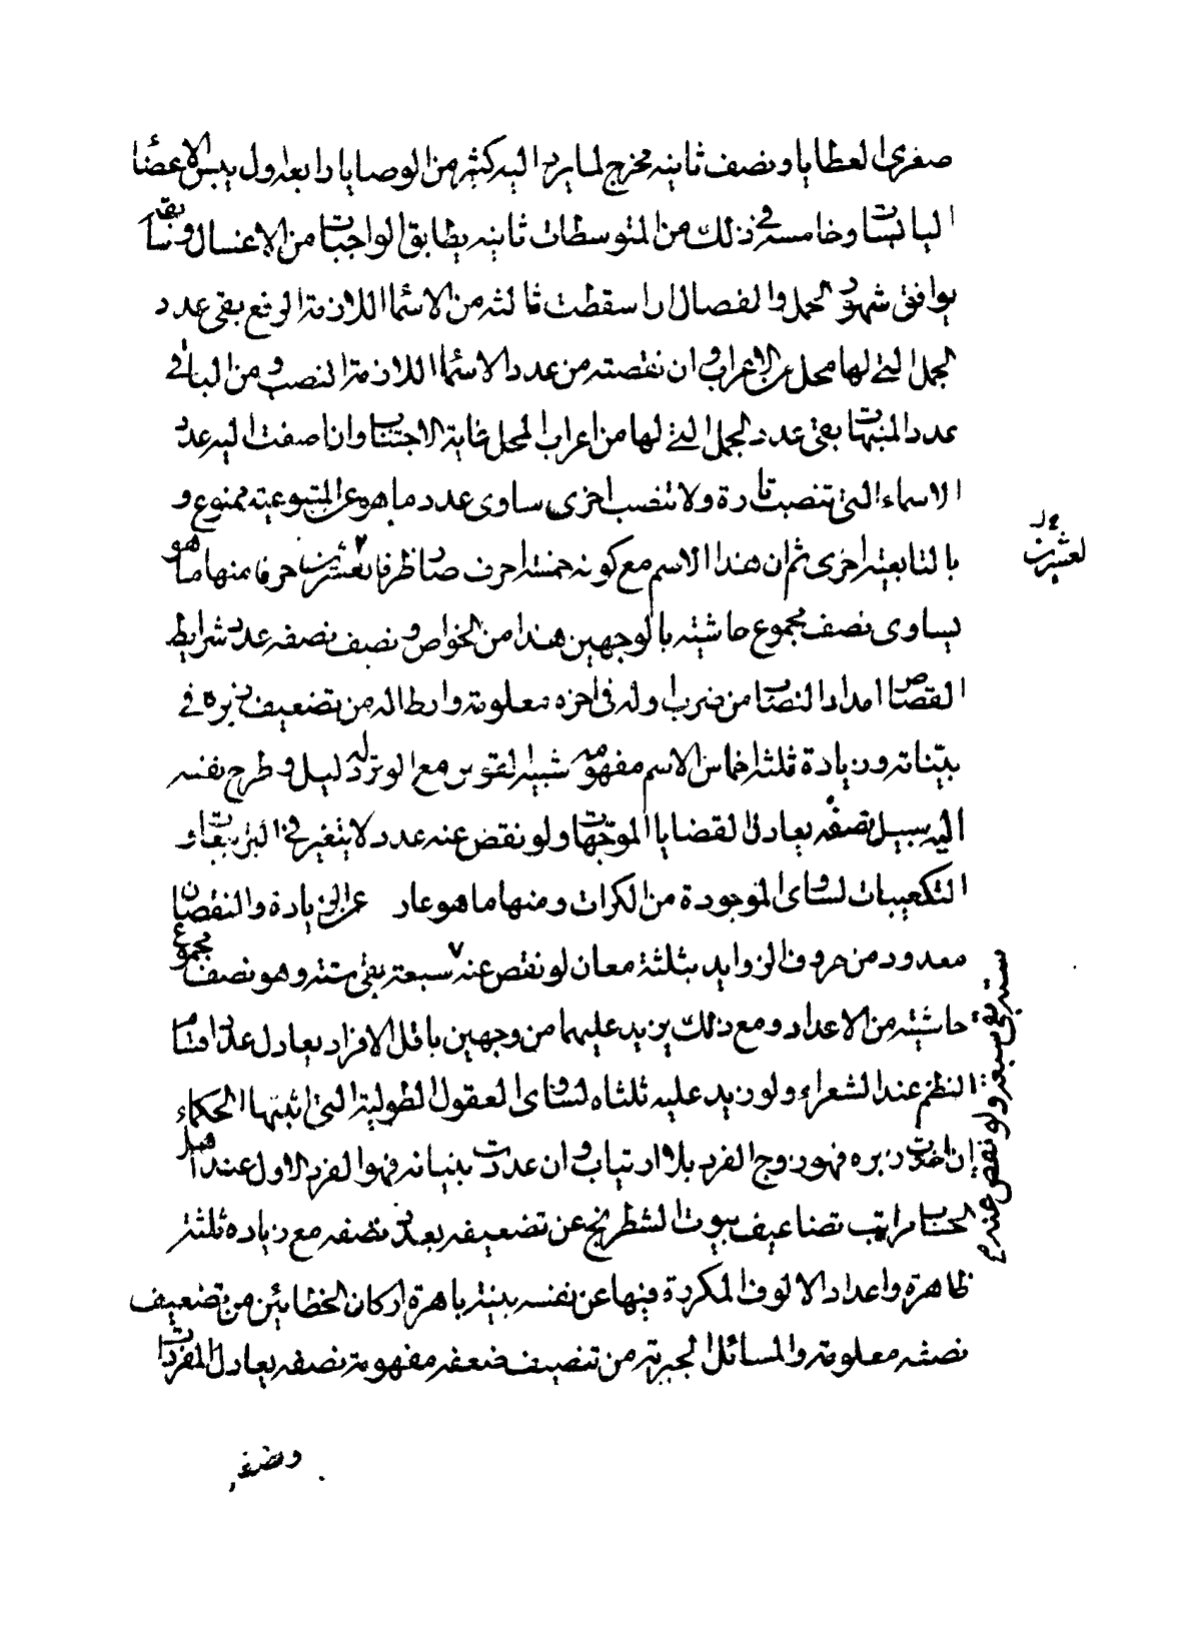 صغرى العطايا ونصف ثانيه مخرج لما يرد اليه كثير من الوصايا رابعه اول يبس الاعضا
اليابسات وخامسه في ذلك من المتوسطات ثانيه يطابق الواجبات من الاغسال و
يوافق شهود الحمل والفصال ان اسقطت ثالثه من الاسماء اللازمة الرفع بقى عدد
الجمل التي لها محل من الاعراب وان نقصته من عدد الاسماء اللازمة النصب ومن الباقي
عدد المنبهات بقى عدد الجمل التي لها من اعراب المحل غاية الاجتناب وان اضفت اليه عدد
الاسماء التي تنصب تارة ولا تنصب اخرى ساوى عدد ما هو عن المتبوعية ممنوع و
بالتابعية اخرى ثم ان هذا الاسم مع كونه خمسة احرف صار ظرفا لعشرين حرفا منها ما هو
يساوى نصف مجموع حاشيته بالوجهين هذا من الخواص ونصف نصفه عدد شرايط
القصاص امداد النصاب من ضرب اوله في اخره معلومة وارطاله من تضعيف زبره في
بيناته وزيادة ثلثة اخماس الاسم مفهومه شبيه القوس مع الوتر له دليل وطرح نفسه
اليه سبيل نصفه يعادل القضايا الموجهات ولو نقص عنه عدد لا يتغير في التربيعات و
التكعيبات لساوى الموجودة من الكرات ومنها ما هو عار عن الزيادة والنقصان
معدود من حروف الزوايد بثلثة معان لو نقص عنه سبعة بقى ستة وهو نصف مجموع
حاشيته من الاعداد ومع ذلك يزيد عليهما من وجهين باقل الافراد يعادل عدد اقسام
النظم عند الشعراء ولو زيد عليه ثلثاه لساوى العقول الطولية التي اثبتها الحكماء
ان اخذت زبره فهو زوج الفرد بلا ارتياب وان عددت بنياته فهو الفرد الاول عند اهل
الحساب مراتب تضاعيف بيوت الشطرنج عن تضعيفه بعد نصفه مع زيادة ثلثة
ظاهرة واعداد الالوف المكررة فيها عن نفسه بينة باهرة اركان الخطايين من تضعيف
نصفه معلومة والمسائل الجبرية من تنصيف ضعفه مفهومة نصفه يعادل المفردات
ونصف
لعشرين
ستة بقى سبعة ولو نقص عنه